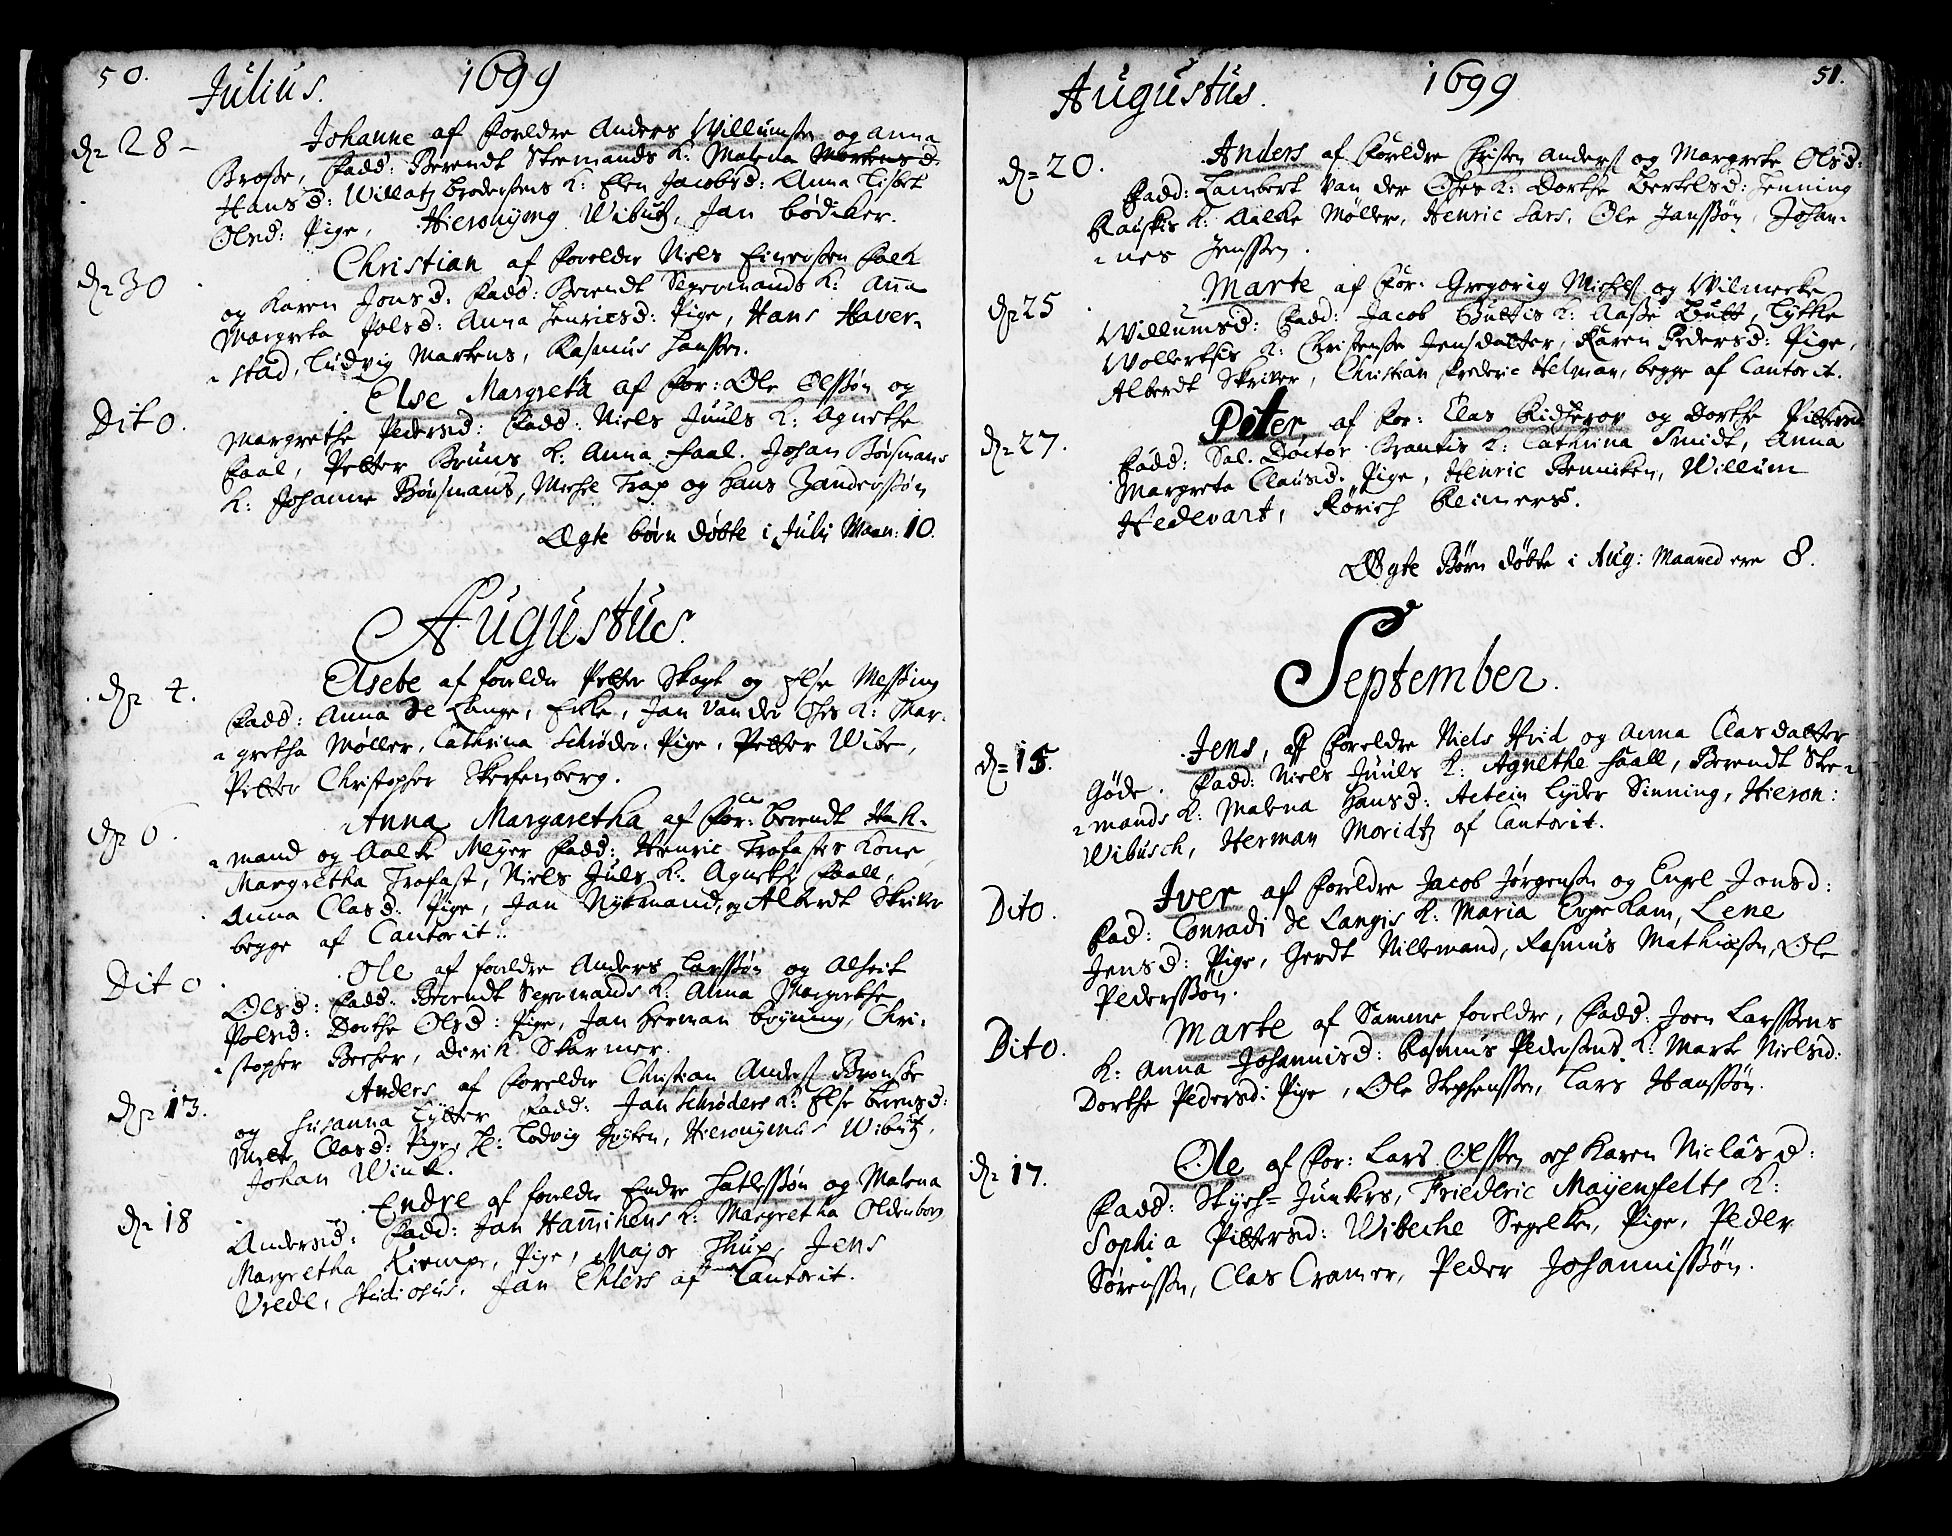 50. Julius. 1699
dn 28 - Johanne af foreldre Anders Willumßen og Anna
Broße, fadd: Berendt Stermands K: Malena
Hansd: Willatz Brodersens K: Elen Jacobsd: Anna Lisbet
Olsd: Pige, Hieronymg Wibütz, Jan bödiker.
dn 30 Christian af foreldre Niels Einersen Falk
og Karen Jonsd. fadd: Berendt Segermands K: Anna
Margreta Polsd: Anna Henricsd: Pige, Hans Haver-
stad, Ludvig Martens, Rasmus Hanssen.
Dito. Else Margreta af for: Ole Olssøn og
Margrethe Pedersd: fadd: Niels Juuls K: Agnethe
Faal, Petter Bruns K: Anna Faal. Johan Börsmans
K: Johanne Börsmans, Michel Trap og Hans Zanderssøn
Ægte børn døbte i Julij Maan: 10.
Augustus.
dn 4. Elsebe af foreldre Petter Skagt og Else Messing
fadd: Anna de Lange, Enke, Jan van der Ohes K: Mar-
gretha Møller, Cathrina Schrøder, Pige, Petter Wibe,
Petter Christopher Sterfenberg.
dn 6. Anna Margaretha af for: berendt Hak-
mand og Aalke Meyer fadd: Henric Trofastes Kone
Margretha Trofast, Niels Juls K: Agnethe Faall,
Anna Clasd: Pige, Jan Nykmand, og Alberdt Skriver
begge af Cantorit.
Dito. Ole af foreldre Anders Larssøn og Alheit
Olsd: fadd: Berendt Segermands K: Anna Margrethe
Polsd: Dorthe Olsd: Pige, Jan Herman bryning, Chri-
stopher Becher, Derik Skarmer.
dn 13. Anders af foreldre Christian Anders Bronske
og Susanna Lytter fadd: Jan Schrøders K: Else berensd:
Mette Clasd: Pige, H: Lodvig Hyken, Hieronymus Wibütz,
Johan Wink.
dn 18 Endre af foreldre Endre Hatlessøn og Malena
Andersd: fadd: Jan Hannikens K: Margretha Oldenborg
Margretha Kiempe, Pige, Major Thup, Jens
Vrede, studiosus, Jan Ehlers af Cantorit.
Augustus. 1699 51.
dn 20. Anders af foreldre Christen Anders og Margrete Olsd:
fadd: Lambert van der Ohes K: Dorthe Bertelsd: Henning
Rauskis K: Aalke Møller, Henric Lars, Ole Janssøn, Johan-
nes Jenssen.
dn 25 Marte af for: Gregorig Michels og Wilmecke
Willumsd: fadd: Jacob Bultis K: Aaße Butt, Lytke
Wollertsis K: Christense Jensdatter, Karen Pedersd: Pige,
Alberdt Skriver, Christian frederic Helman, begge af Cantorit.
dn 27. Peter af for: Clas Ridseror og Dorthe Pittersd
fadd: Sal. Doctor Brantis K: Cathrina Smidt, Anna
Margreta Clausd. Pige, Henric Benniken, Willum
Hedevart, Rörich Reimers.
Ægte Børn døbte i Aug: Maaned ere 8.
September.
dn 15. Jens, af foreldre Niels Hvid og Anna Clasdatter
Göde. fadd: Niels Juuls K: Agnethe Faall, Berendt Ste-
mands K: Malena Hansd: Actein Lyder Sinning, Hieron:
Wibusch, Herman Moridtz af Cantorit.
Dito. Iver af foreldre Jacob Jörgensen og Engel Jonsd:
fad: Conradj de Langis K: Maria Eppe Kam, Lene
Jensd: Pige, Gerdt Nillemand, Rasmus Mathiæßen, Ole
Pederssøn.
Dito. Marte af Samme foreldre, fadd: Joen Larssens
K: Anna Johannisd: Rasmus Pedersens K: Marte Nielsd:
Dorthe Pedersd: Pige, Ole Stephenssen, Lars Hanssøn.
dn 17. Ole af for: Lars Olssen och Karen Niclåsd:
fadd: Skych= Junkers, Friederic Mayenfelts K:
Sophia Pittersd: Wibeche Segelken, Pige, Peder
Sørenssen, Clas Cramer, Peder Johannissøn.